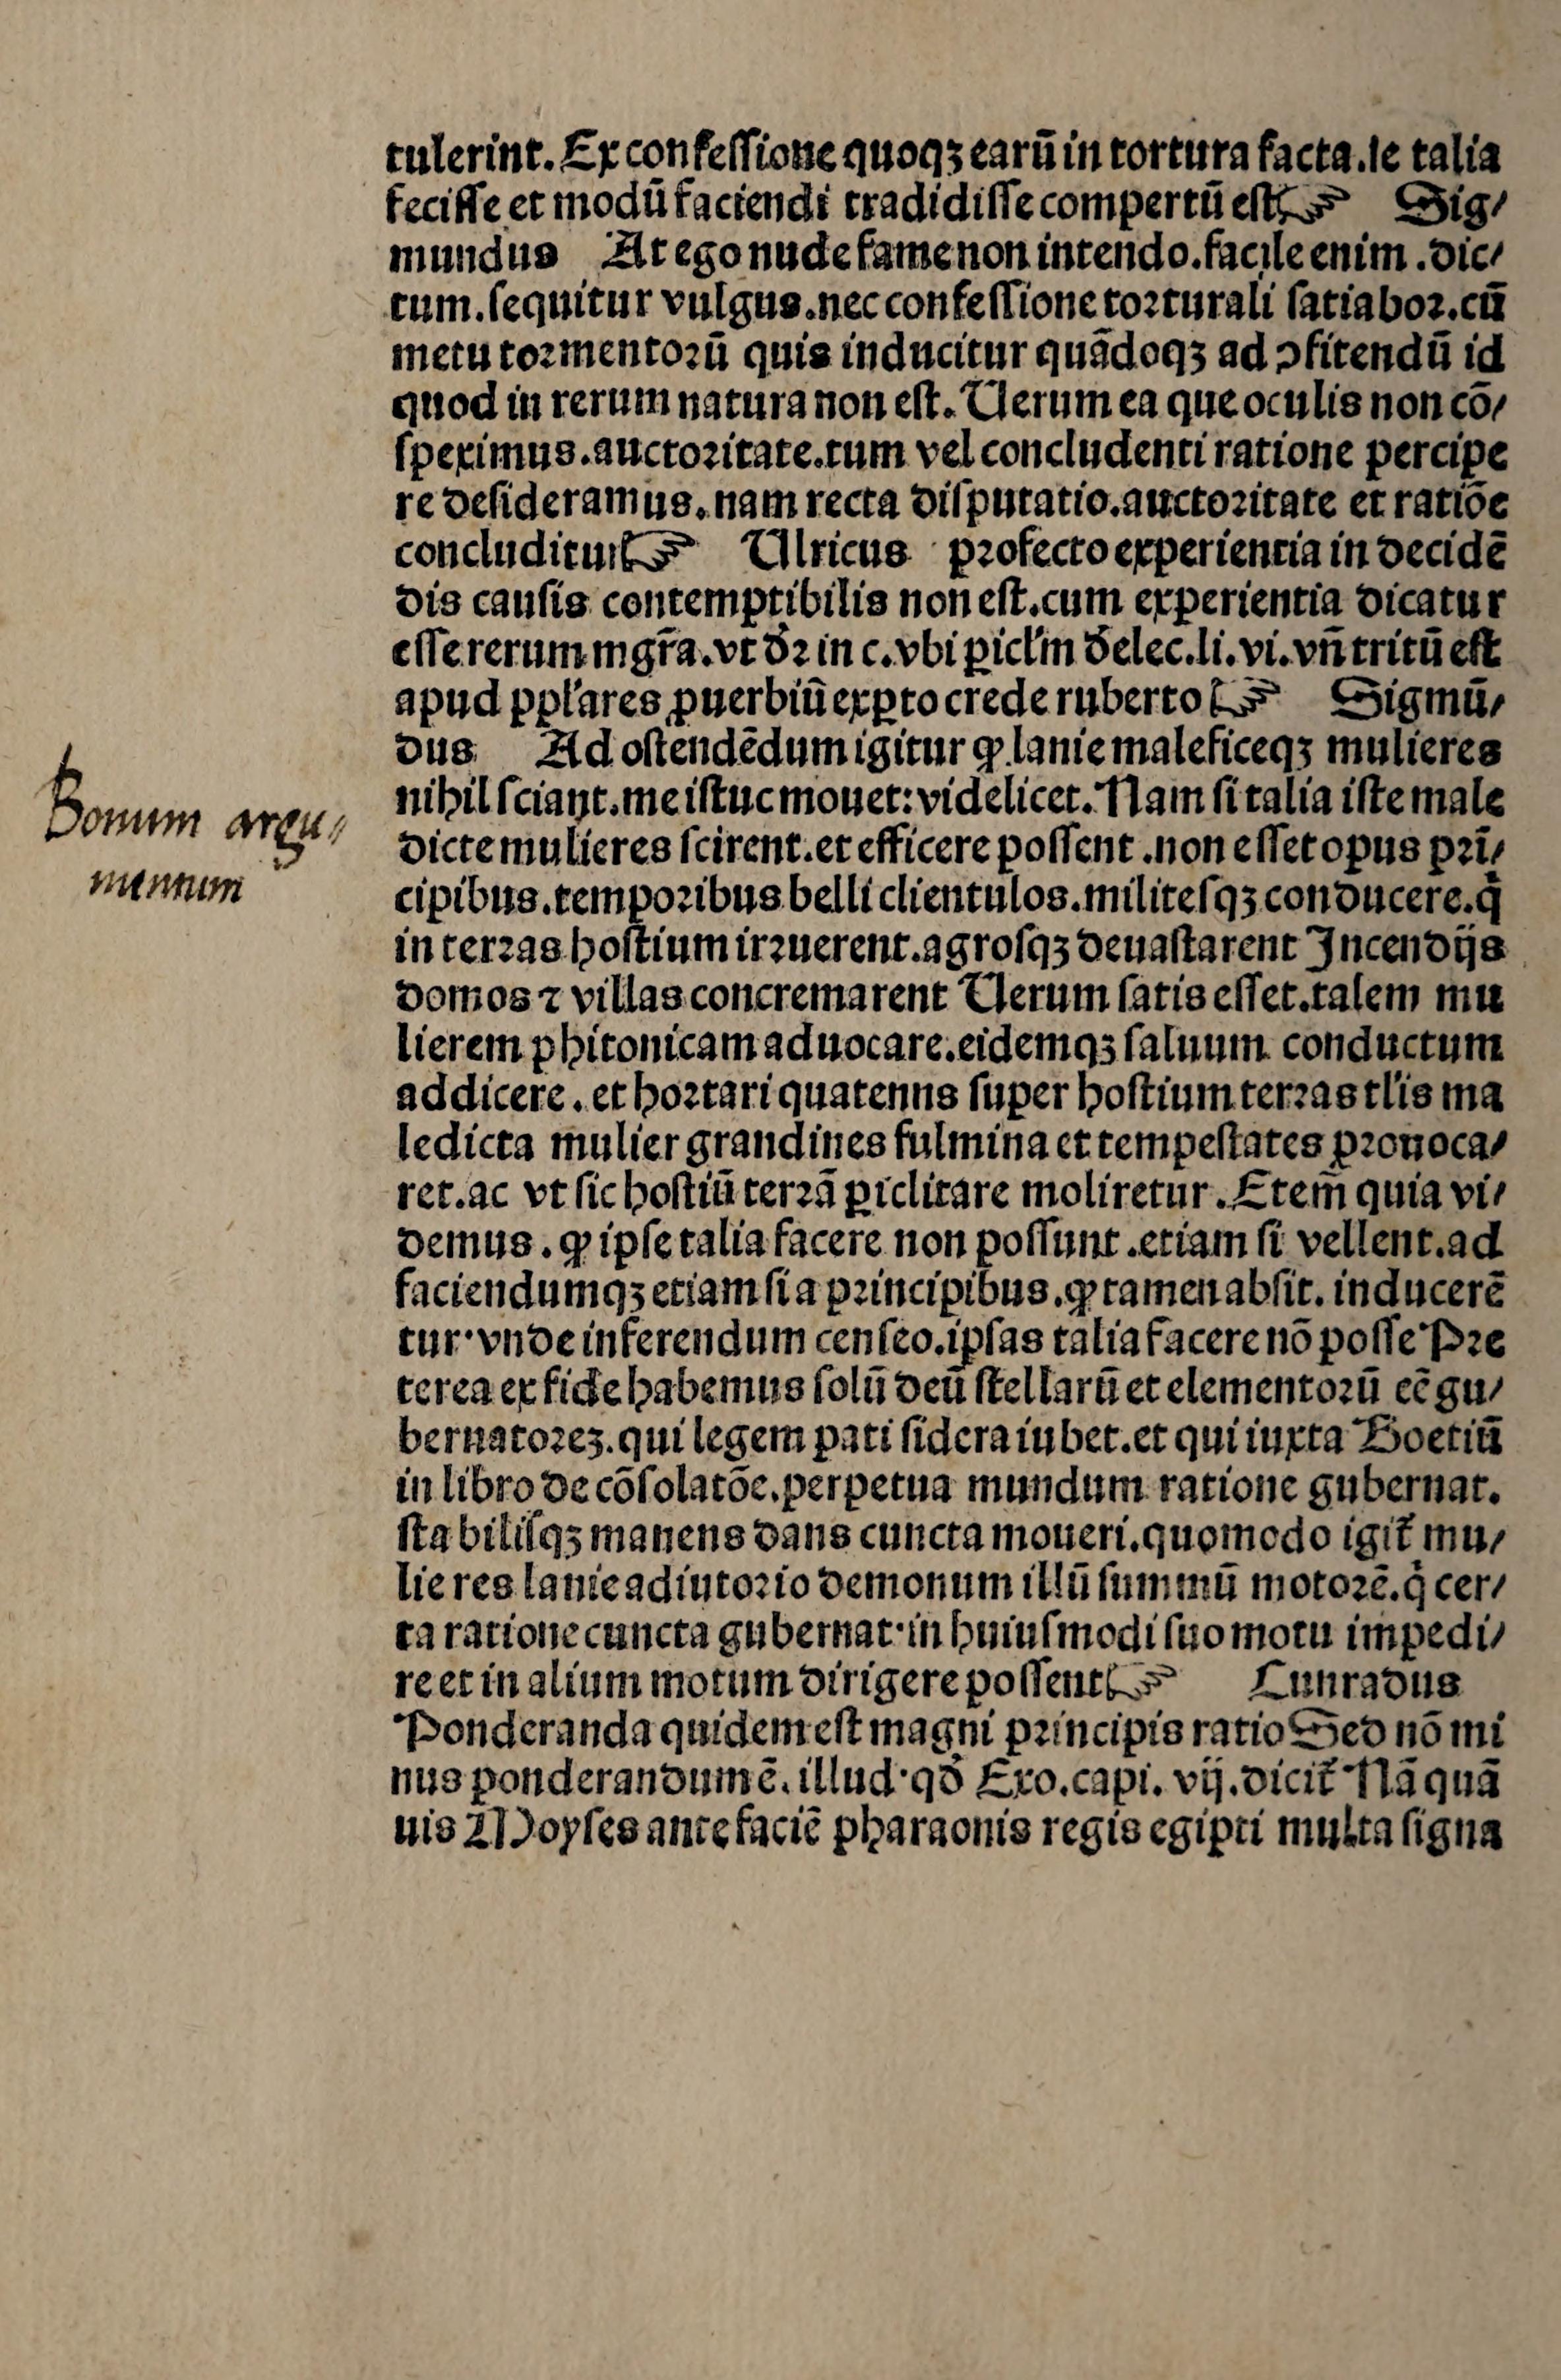 tulerint. Ex confeſſione quoqꝫ earū in tortura facta. ſe talia
feciſſe et modū faciendi tradidiſſe compertū eſt☞ Sig⸗
mundus At ego nude fame non intendo. facile enim . dic⸗
tum. ſequitur vulgus. nec confeſſione toꝛturali ſatiaboꝛ. cū
metu toꝛmentoꝛū quis inducitur quādoqꝫ ad ꝯfitendū id
quod in rerum natura non eſt. Uerum ea que oculis non cō⸗
ſpeximus. auctoꝛitate. tum vel concludenti ratione percipe
re deſideramus. nam recta diſputatio. auctoꝛitate et ratiōe
concluditur☞ Ulricus pꝛofecto experientia in decidē
dis cauſis contemptibilis non eſt. cum experientia dicatur
eſſe rerum mgr̄a. vt dꝛ̄ in c. vbi ꝑicl'm de elec. li. vi. vn̄ tritū eſt
apud ppl'ares ꝓuerbiū exꝑto crede ruberto ☞ Sigmū⸗
dus Ad oſtendēdum igitur ꝙ lanie maleficeqꝫ mulieres
nihil ſciant. me iſtuc mouet: videlicet. Nam ſi talia iſte male
dicte mulieres ſcirent. et efficere poſſent . non eſſet opus pꝛī⸗
cipibus. tempoꝛibus belli clientulos. militeſqꝫ conducere. qͥ
in terꝛas hoſtium irꝛuerent. agroſqꝫ deuaſtarent Incendijs
domos ⁊ villas concremarent Uerum ſatis eſſet. talem mu
lierem phitonicam aduocare. eidemqꝫ ſaluum conductum
addicere . et hoꝛtari quatenns ſuper hoſtium terꝛas tl'is ma
ledicta mulier grandines fulmina et tempeſtates pꝛouoca⸗
ret. ac vt ſic hoſtiū terꝛā ꝑiclitare moliretur . Etem̄ quia vi⸗
demus . ꝙ ipſe talia facere non poſſunt . etiam ſi vellent. ad
faciendumqꝫ etiam ſi a pꝛincipibus . ꝙ tamen abſit. inducerē
tur· vnde inferendum cenſeo. ipſas talia facere nō poſſe Pꝛe
terea ex fide habemus ſolū deū ſtellarū et elementoꝛū eē gu⸗
bernatoꝛeꝫ. qui legem pati ſidera iubet. et qui iuxta Boetiū
in libro de cōſolatōe. perpetua mundum ratione gubernat.
ſta biliſqꝫ manens dans cuncta moueri. quomodo igit᷑ mu⸗
lie res lanie adiutoꝛio demonum illū ſummū motoꝛē. qͥ cer⸗
ta ratione cuncta gubernat· in huiuſmodi ſuo motu impedi⸗
re et in alium motum dirigere poſſent☞ Cunradus
Ponderanda quidem eſt magni pꝛincipis ratio Sed nō mi
nus ponderandum ē. illud· qd̓ Exo. capi. vij. dicit᷑ Nā quā
uis Moyſes ante faciē pharaonis regis egipti multa ſigna
Bonum argu⸗
mentum